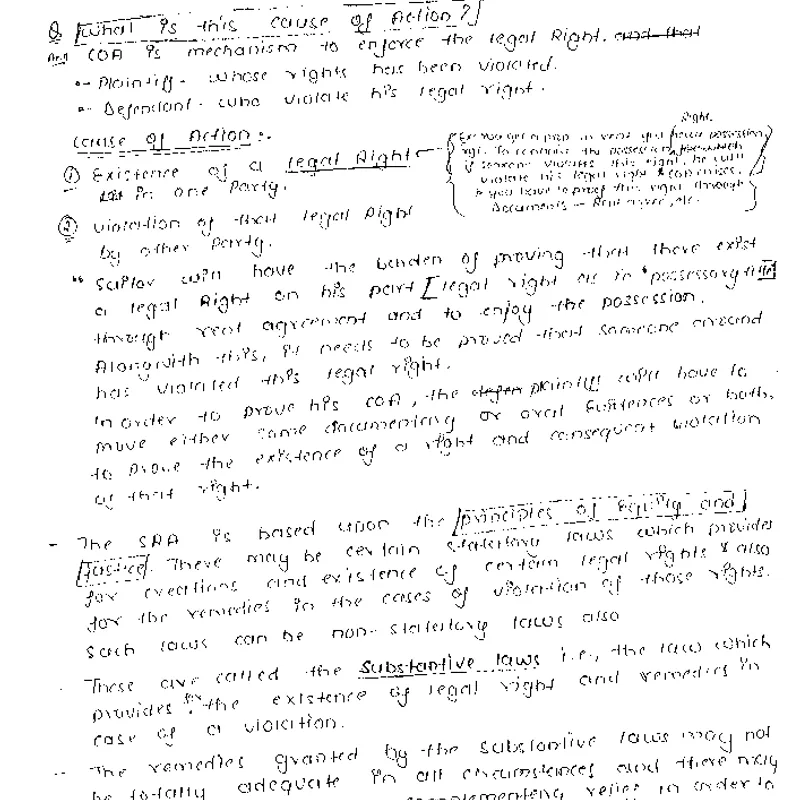 Q. What is this cause of Action?
Ans COA is mechanism to enforce the legal Right. and that
- Plaintiff - whose rights has been violated.
- Defendant - who violate his legal right.
Cause of Action :-
① Existence of a legal Right
in one Party.
Right.
Ex: You get a prop. on rent you have possession
rgt. To continue the possession
if someone violates this right, he will
violate his legal right &
& you have to proof this right through
Documents - Rent agree, etc.
② violation of that legal Right
by other Party.
" Suitor will have the burden of proving that there exist
a legal Right on his part [legal right as in "possessory title]
through rent agreement and to enjoy the possession.
Alongwith this, it needs to be proved that someone around
has violated this legal right.
In order to prove his COA, the plaintiff will have to
move either some documentary or oral Evidences or both,
to prove the existence of a right and consequent violation
of that right.
- The SRA is based upon the principles of Equity and
Justice. There may be certain statutory laws which provides
for creations and existence of certain legal rights & also
for the remedies in the cases of violation of those rights.
Such laws can be non-statutory laws also
. These are called the substantive laws i.e., the law which
provides for the existence of legal right and remedies in
case of a violation.
-- The remedies granted by the substantive laws may not
be totally adequate in all circumstances and there may
relief in order to